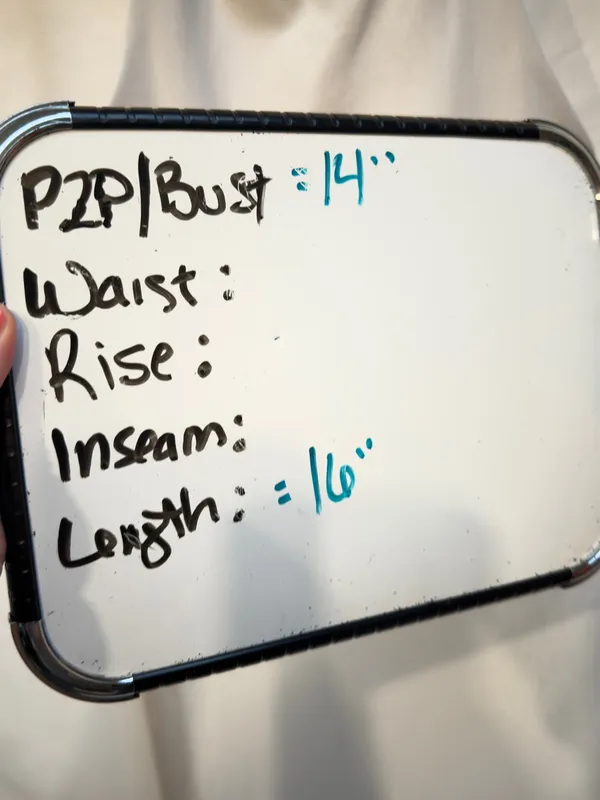 P2P/Bust = 14"
Waist:
Rise:
Inseam:
Length: = 16"